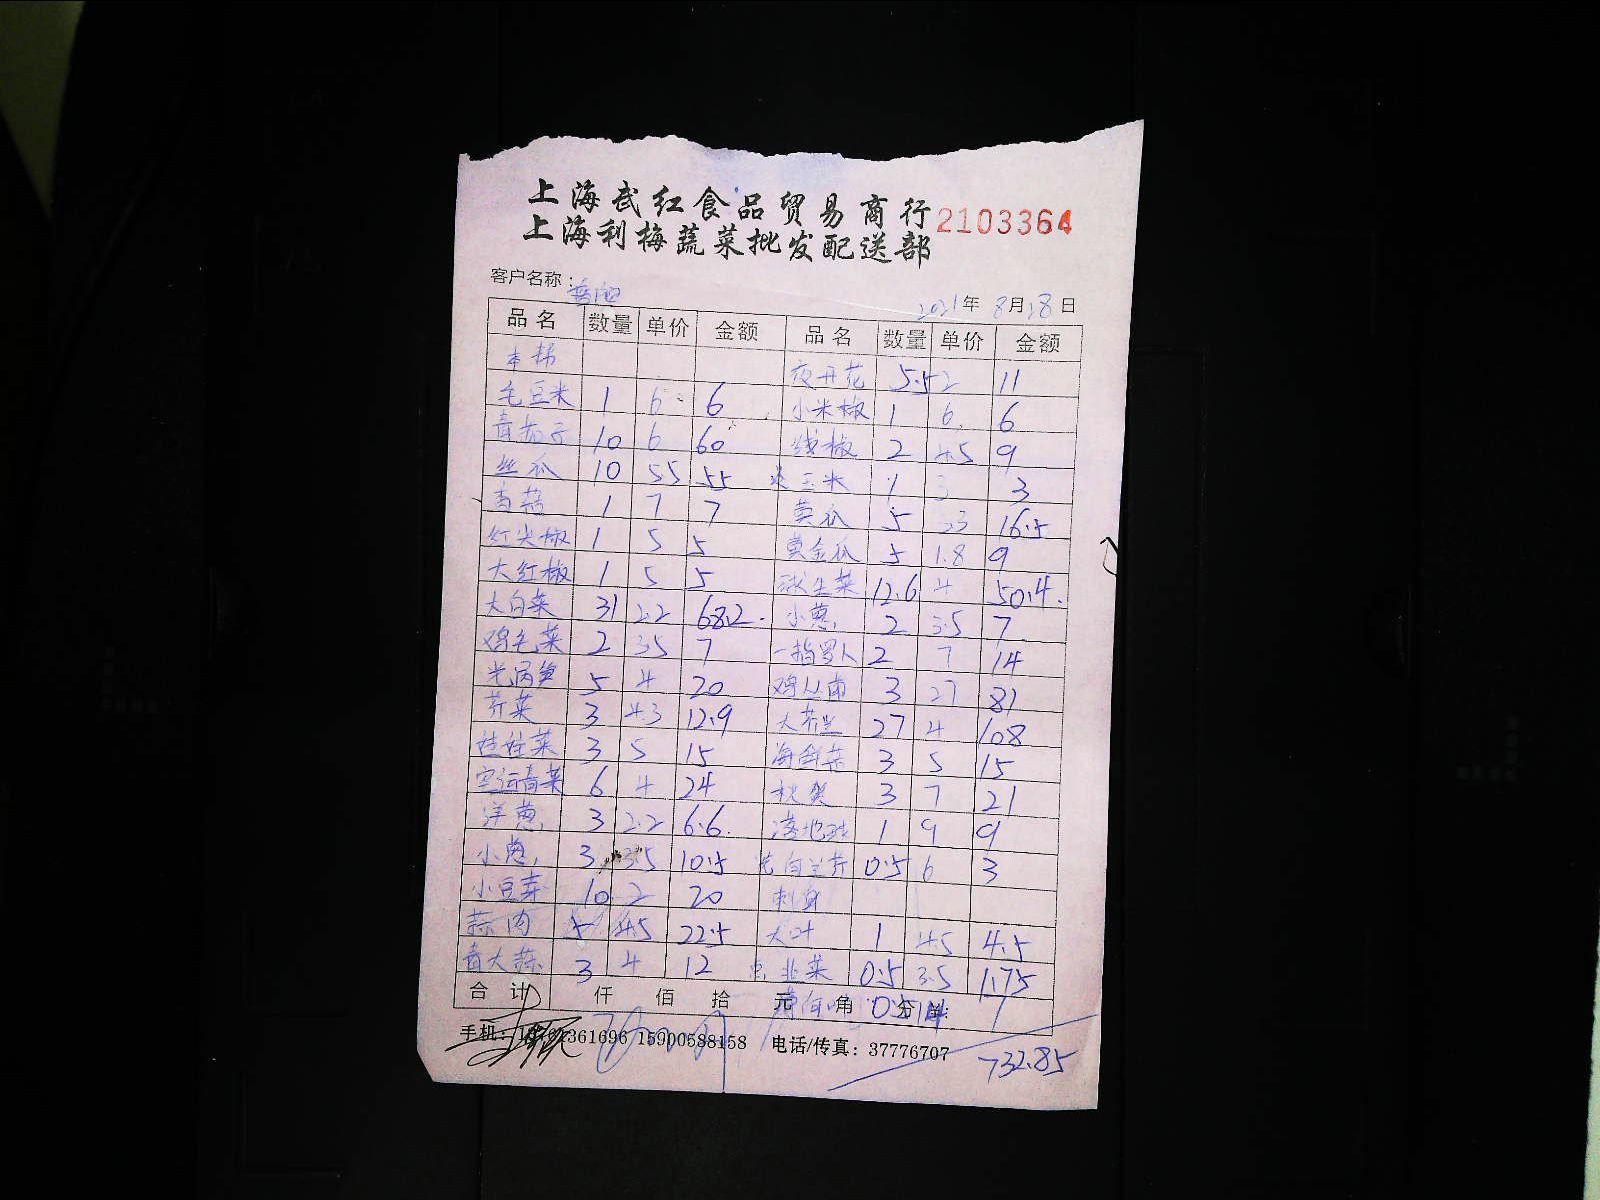 上海武红食品贸易商行
上海利梅蔬菜批发配送部 2103364
客户名称:
2021年 8月28日
品名 数量 单价 金额 品名 数量 单价 金额
夜开花 5.5 2 11
毛豆米 1 6 6 小米椒 1 6 6
青茄子 10 6 60 线椒 2 4.5 9
丝瓜 10 5.5 55 玉米 1 3 3
香菇 1 7 7 黄瓜 5 16.5
红尖椒 1 5 5 黄金瓜 5 1.8 9
大红椒 1 5 5 球生菜 12.6 4 50.4
大白菜 31 2.2 68.2 小葱 2 3.5 7
鸡毛菜 2 3.5 7 2 7 14
5 4 20 3 27 81
芹菜 3 4.3 12.9 27 4 108
娃娃菜 3 5 15 海鲜菇 3 5 15
空运青菜 6 4 24 秋葵 3 7 21
洋葱 3 2.2 6.6 1 9 9
小葱 3 3.5 10.5 0.5 6 3
小豆芽 10 2 20 刺身
蒜肉 5 4.5 22.5 大叶 1 4.5 4.5
青大蒜 3 4 12 韭菜 0.5 3.5 1.75
合计 仟 佰 拾 元 角 分 0.5 14 7
手机: 361696 15900588158 电话/传真: 37776707
732.85